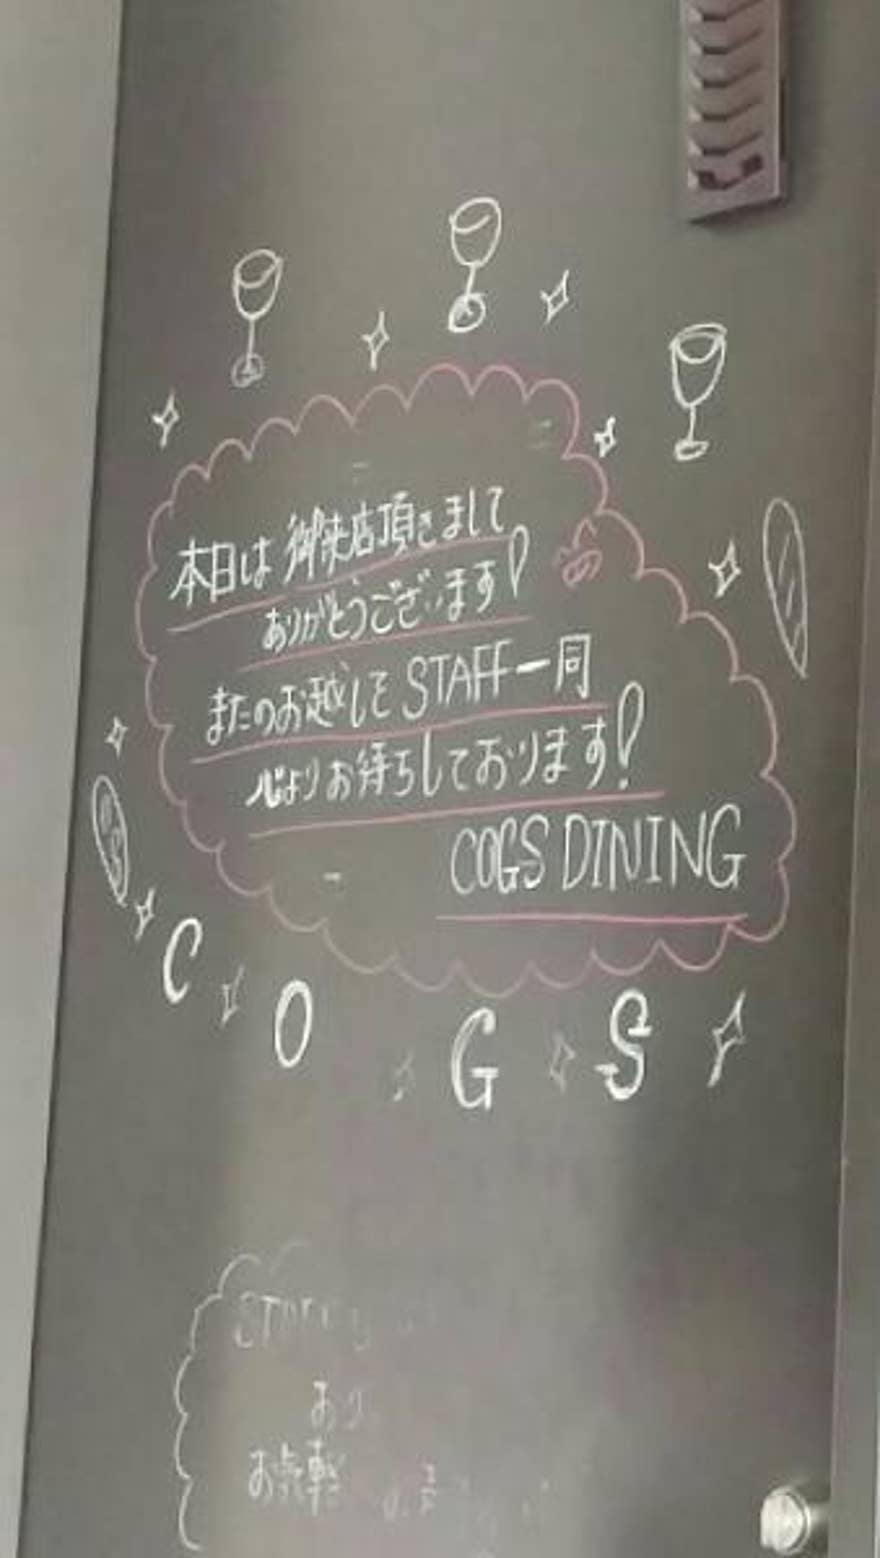 本日は御来店頂きまして
ありがとうございます!
またのお越しを STAFF一同
心よりお待ちしております!
COGS DINING
C O G S
お気軽